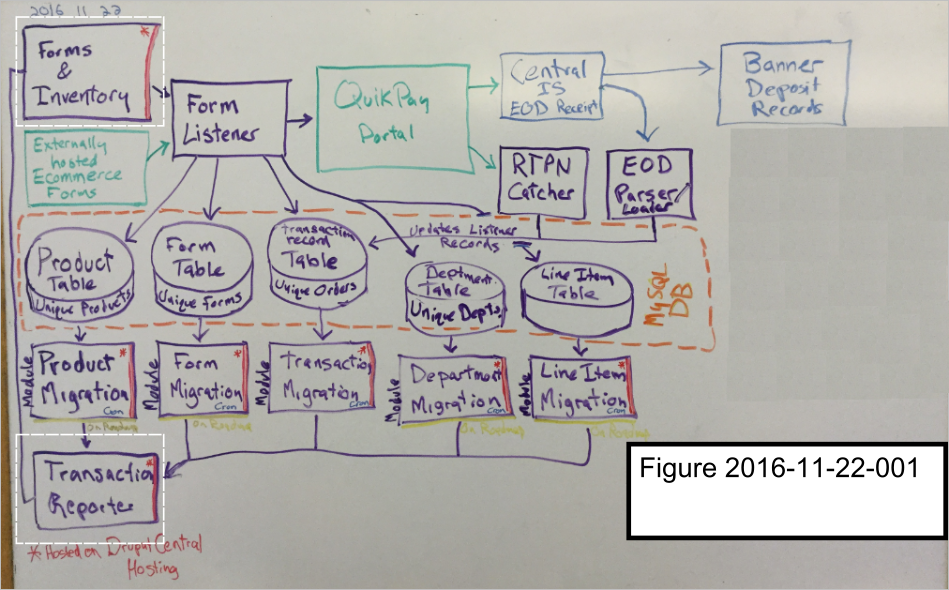 2016 11 22
Forms
&
Inventory
*
Form
Listener
QuikPay
Portal
Central
IS
EOD Receipt
Banner
Deposit
Records
Externally
hosted
Ecommerce
Forms
RTPN
Catcher
EOD
Parser/
Loader
Updates Listener
Records
Product
Table
Unique Products
Form
Table
Unique Forms
Transaction
record
Table
Unique Orders
Deptment
Table
Unique Depts.
Line Item
Table
MySQL
DB
Module
Product *
Migration
Cron
On Roadmap
Module
Form *
Migration
Cron
On Roadmap
Module
Transaction *
Migration
Cron
Module
Department *
Migration
Cron
On Roadmap
Module
Line Item *
Migration
Cron
On Roadmap
Transaction *
Reporter
* Hosted on Drupal Central
Hosting
Figure 2016-11-22-001